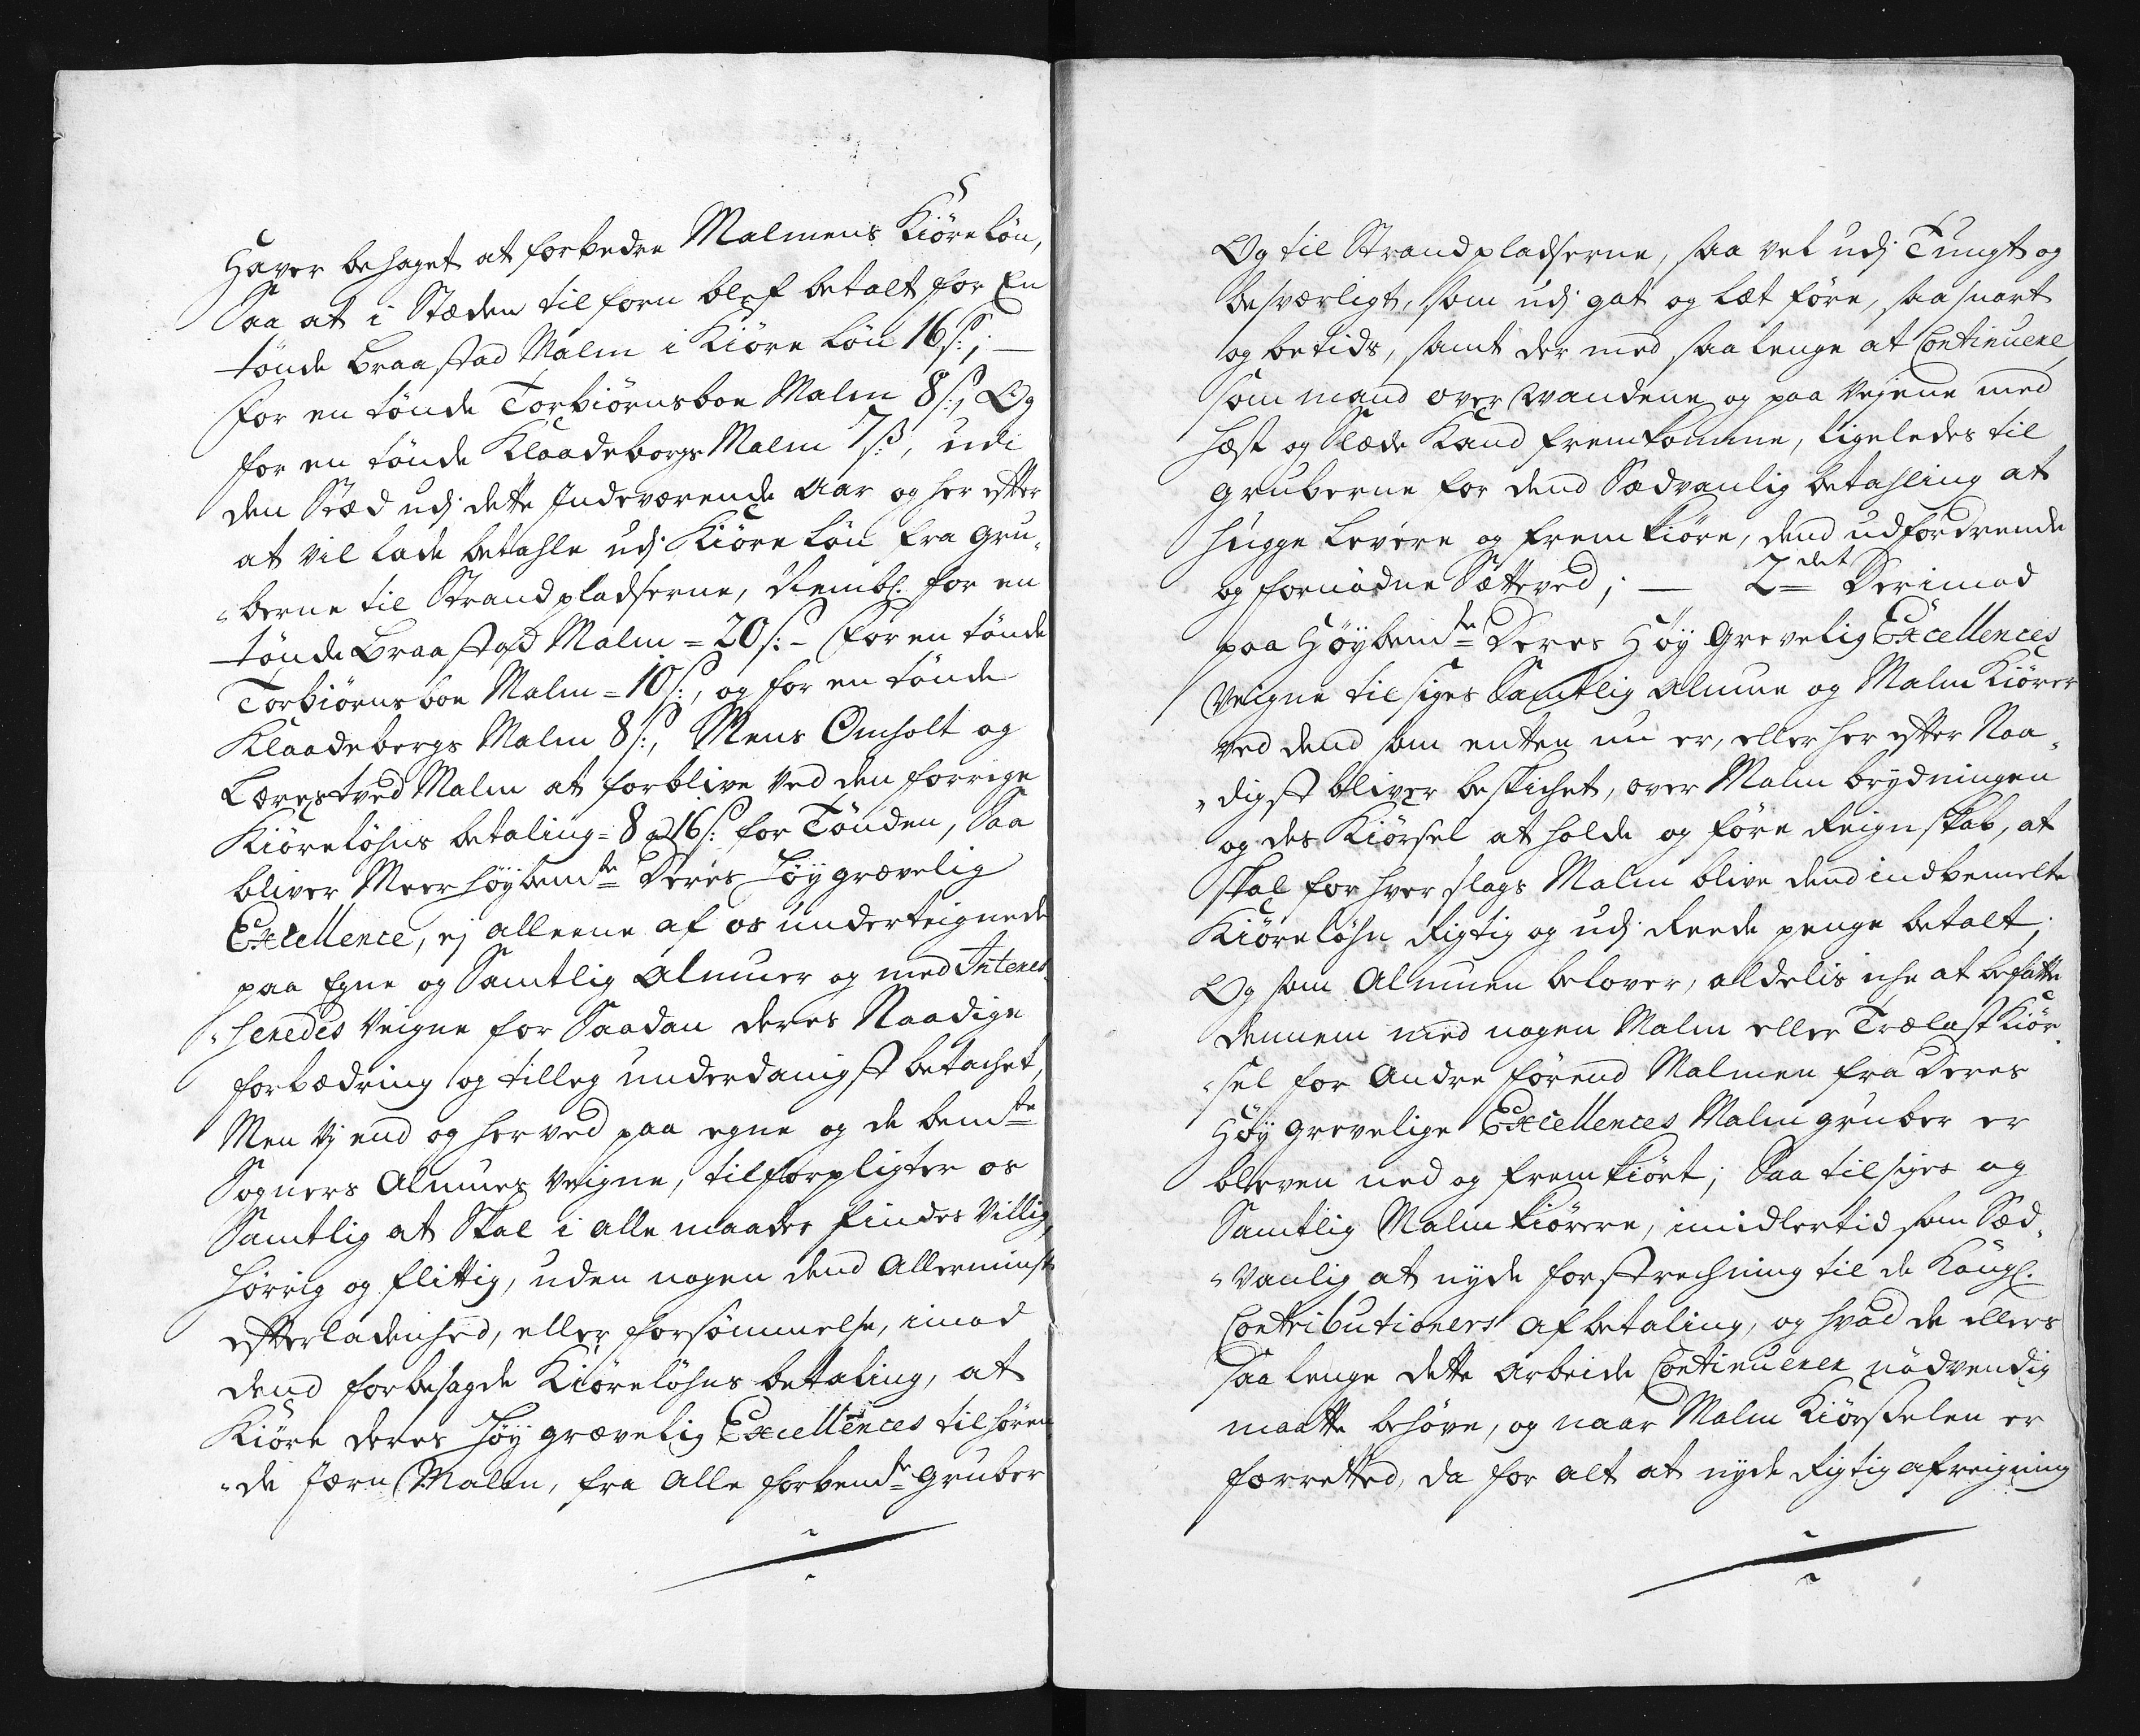 Haver behaget at forbedre Malmens Kiöre Lön,
Saa at i Stæden tilforn blef betalt for En
tönde Braastad Malm i Kiöre Lön 16 s:; —
for en tönde Torbiörnsboe Malm 8 s:, Og
for en tönde Klaadeborgs Malm 7 s:, udi
den Stæd udj dette Indeværende Aar og her efter
at vil Lade betahle udj Kiöre Lön fra Gru-
-berne til Strandpladserne, Nembl. for en
tönde Braastad Malm = 20 s: - for en tönde
Torbiörnsboe Malm = 10 s:, og for en tönde
Klaadebergs Malm 8 s:, Mens Omholt og
Lærestved Malm at forblive Ved den forrige
Kiörelöhns betaling = 8 a 16 s: for Tönden, Saa
bliver Meer höybemte Deres Höy grævelig
Excellence, ej alleene af os underteignede
paa Egne og Samtlig Almuer og med Interes-
-seredes Veigne for Saadan deres Naadige
forbædring og tilleg underdanigst betachet,
Men Vj end og herved paa egne og de bemte
Sogners Almues Veigne, tilforpligter os
Samtlig at Skal i alle maader findes Villig,
Hörrig og flittig, uden nogen dend Allerminste
efterladenhed, eller forsömmelse, imod
dend forbesagde Kiörelöhns betaling, at
Kiöre deres Höy grævelig Excellences tilhören
-de Jærn Malm, fra Alle forbemte Gruber
Og til Strandpladserne, saa vel udj Tungt og
besværligt, som udj gat og Læt före, saa snart
og betids, samt der med saa lenge at Continuere
som mand over Vandene og paa Vejene med
Hæst og Slæde Kand fremkomme, ligeledes til
Gruberne for dend Sædvanlig betahling at
Hugge Levere og fremkiöre, dend udfordrende
og fornödne Sætteved; — 2det Derimod
paa Höybemte Deres Höy Grevelig Excellences
Veigne tilsiges Samtlig Almue og Malm Kiörer
ved dend som enten nu er, eller her efter Naa-
-digst bliver beskichet, over Malm brydningen
og des Kiörsel at holde og före Reignskab, at
skal for hver slags Malm blive dend indbemelte
Kiörelöhn Rigtig og udj Reede penge betalt;
Og som Almuen belover, aldelis iche at befatte
dennem med nogen Malm eller Trælast Kiör-
-sel for Andre förend Malmen fra Deres
Höy Grevelige Excellences Malm gruber er
bleven ned og fremkiört; Saa tilsiges og
Samtlig Malm kiörere, imidlertid som Sæd-
-vanlig at nyde forstrechning til de Kongl.
Contributioners afbetaling, og hvad de ellers
Saa lenge dette Arbeide Continuerer nödvendig
maatte behöve, og naar Malm Kiörsselen er
forretted, da for alt at nyde Rigtig afreigning